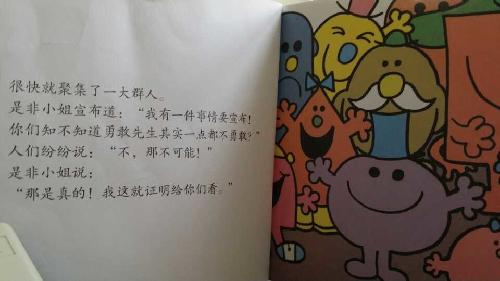 很快就聚集了一大群人。
是非小姐宣布道：“我有一件事情要宣布！
你们知不知道勇敢先生其实一点都不勇敢？”
人们纷纷说：“不，那不可能！”
是非小姐说：
“那是真的！我这就证明给你们看。”